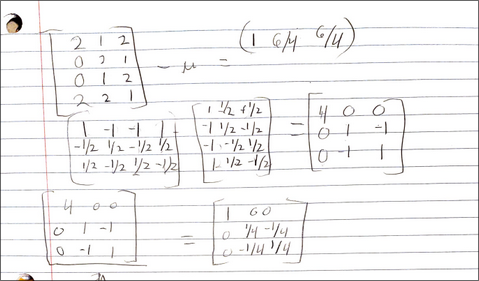 (1 6/4 6/4)
2 1 2
0 2 1 - μ =
0 1 2
2 2 1
1 -1 -1 1
-1/2 1/2 -1/2 1/2
1/2 -1/2 1/2 -1/2
1 1/2 +1/2
-1 1/2 -1/2
-1 -1/2 1/2
1 -1/2 -1/2
=
4 0 0
0 1 -1
0 -1 1
4 0 0
0 1 -1
0 -1 1
=
1 0 0
0 1/4 -1/4
0 -1/4 1/4